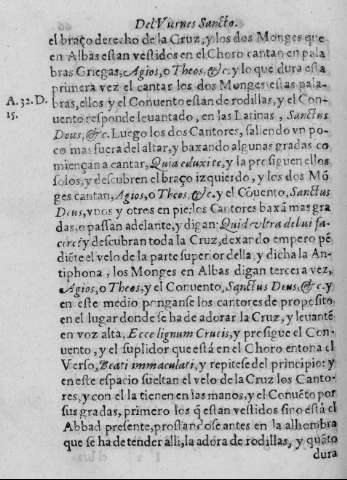 Del Viernes Sancto.
el braço derecho de la Cruz, y los dos Monges que
en Albas estan vestidos en el Choro cantan en pala
bras Griegas, Agios, o Theos, &c. y lo que dura esta
primera vez el cantar los dos Monges estas pala-
A. 32. D.
15.
bras, ellos y el Conuento estan de rodillas, y el Con-
uento responde leuantado, en las Latinas, Sanctus
Deus, &c. Luego los dos Cantores, saliendo vn po-
co mas fuera del altar, y baxando algunas gradas co
miençan a cantar, Quia eduxi te, y la prosiguen ellos
solos, y descubren el braço izquierdo, y los dos Mõ
ges cantan, Agios, o Theos, &c. y el Cõuento, Sanctus
Deus, vnos y otros en pie: los Cantores baxã mas gra
das, o passan adelante, y digan: Quid vltra debui fa-
cere? y descubran toda la Cruz, dexando empero pẽ
diẽte el velo de la parte superior della, y dicha la An-
tiphona, los Monges en Albas digan tercera vez,
Agios, o Theos, y el Conuento, Sanctus Deus, &c. y
en este medio ponganse los cantores de proposito
en el lugar donde se ha de adorar la Cruz, y leuantẽ
en voz alta, Ecce lignum Crucis, y prosigue el Con-
uento, y el suplidor que està en el Choro entona el
Verso, Beati immaculati, y repitese del principio: y
en este espacio sueltan el velo de la Cruz los Canto-
res, y con el la tienen en las manos, y el Conuẽto por
sus gradas, primero los q̃ estan vestidos sino està el
Abbad presente, prostandose antes en la alhombra
que se ha de tender alli, la adora de rodillas, y quãto
dura